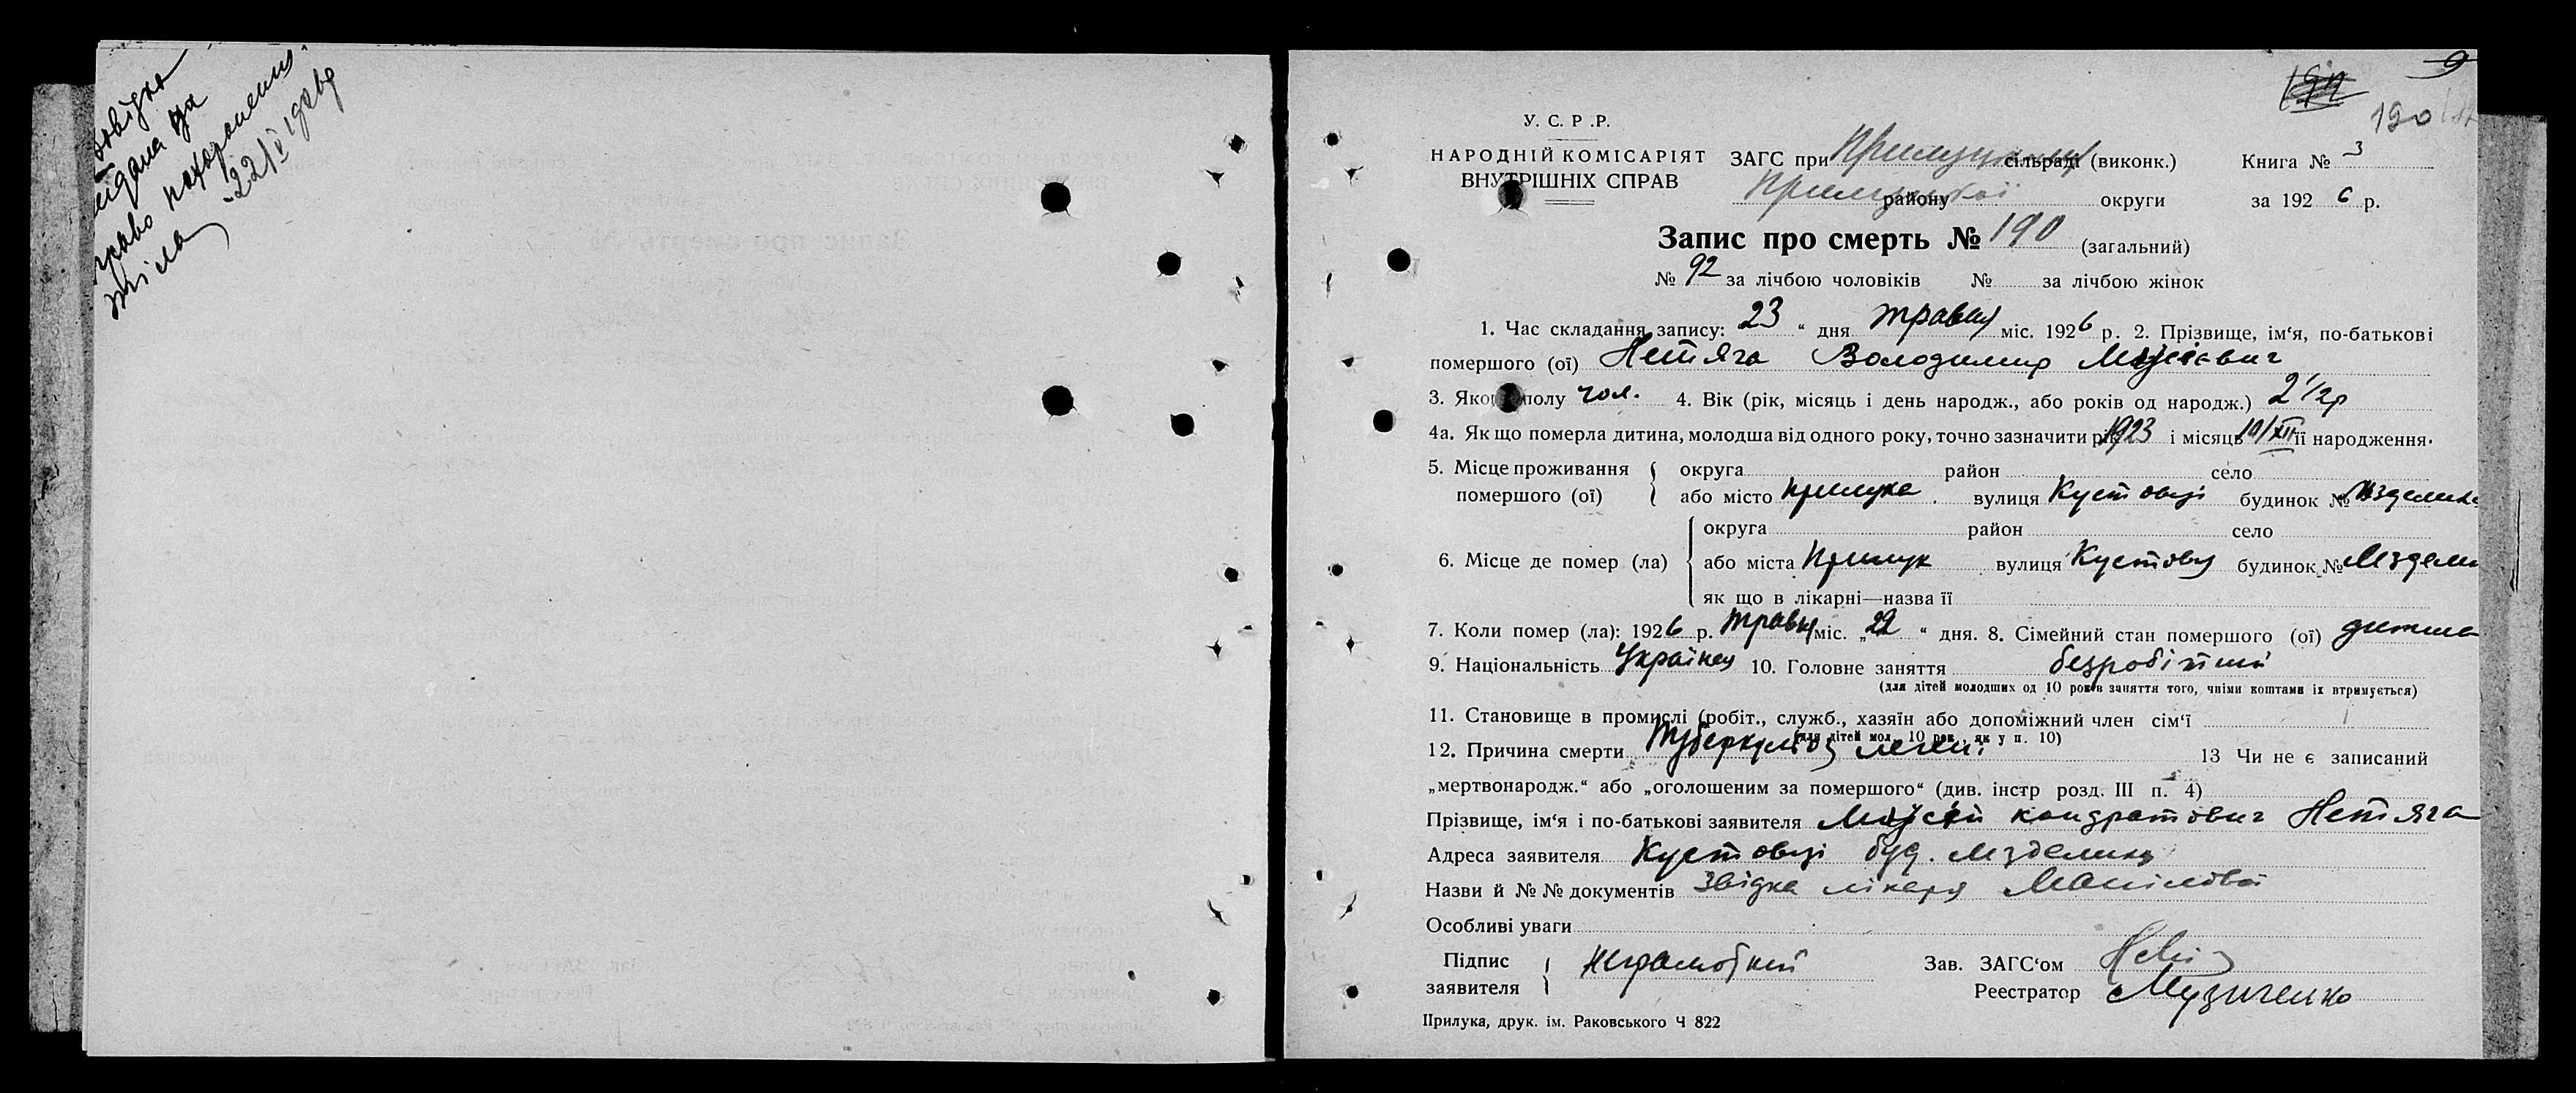 видана на
право похоронення
тіла 22/V 1926р
9
190
У. С. Р. Р.
НАРОДНІЙ КОМІСАРІЯТ ЗАГС при сільраді (виконк.) Книга № 3
ВНУТРІШНІХ СПРАВ Прилуцької району округи за 1926 р.
Запис про смерть № 190 (загальний)
№ 92 за лічбою чоловіків № за лічбою жінок
1. Час складання запису: 23 “ дня травня міс. 1926 р. 2. Прізвище, ім‘я, по-батькові
помершого (ої) Нетяга Володимир Мусієвич
3. Якого полу чол. 4. Вік (рік, місяць і день народж., або років од народж.) 2 1/2 р
4а. Як що померла дитина, молодша від одного року, точно зазначити рік 1923 і місяць 10/XII її народження.
5. Місце проживання округа район село
помершого (ої) або місто Прилука вулиця Кустовці будинок №
округа район село
6. Місце де помер (ла) або міста Прилук вулиця Кустовці будинок №
як що в лікарні—назва її
7. Коли помер (ла): 1926 р. травня міс. „22 “ дня. 8. Сімейний стан помершого (ої) дитина
9. Національність Українец 10. Головне заняття безробітний
(для дітей молодших од 10 років заняття того, чиїми коштами їх втримується)
11. Становище в промислі (робіт., служб., хазяїн або допоміжний член сім‘ї
(для дітей мол. 10 рок. як у п. 10)
12. Причина смерти Туберкульоз легені 13 Чи не є записаний
„мертвонародж.“ або „оголошеним за помершого“ (див. інстр розд. III п. 4)
Прізвище, ім‘я і по-батькові заявителя Мусій Кондратович Нетяга
Адреса заявителя Кустовці буд.
Назви й №№ документів Звідка лікаря
Особливі уваги
Підпис неграмотний Зав. ЗАГС‘ом
заявителя Реєстратор Музиченко
Прилука, друк. ім. Раковського Ч 822